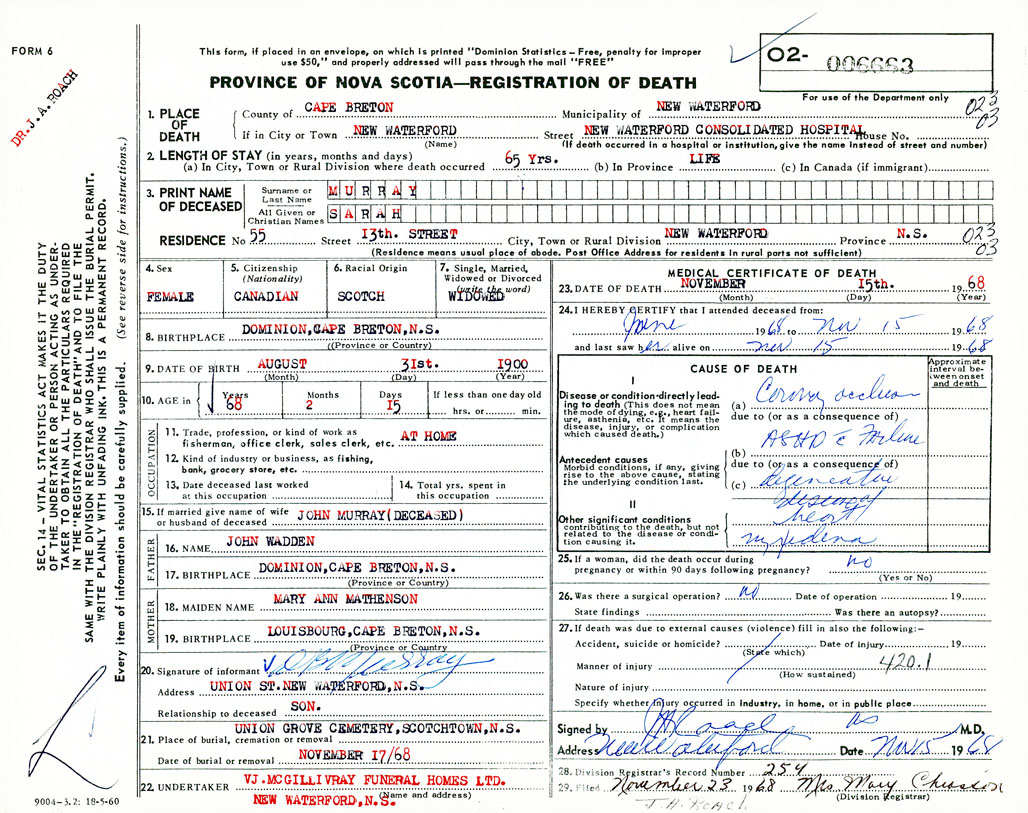 FORM 6
DR. J. A. ROACH
This form, if placed in an envelope, on which is printed "Dominion Statistics – Free, penalty for improper
use $50," and properly addressed will pass through the mail "FREE"
PROVINCE OF NOVA SCOTIA—REGISTRATION OF DEATH
02- 006663
For use of the Department only
023
03
1. PLACE OF DEATH
County of CAPE BRETON Municipality of NEW WATERFORD
If in City or Town NEW WATERFORD Street NEW WATERFORD CONSOLIDATED HOSPITAL House No.
(Name) (If death occurred in a hospital or institution, give the name instead of street and number)
2. LENGTH OF STAY (in years, months and days)
(a) In City, Town or Rural Division where death occurred 65 Yrs. (b) In Province LIFE (c) In Canada (if immigrant)
3. PRINT NAME OF DECEASED
Surname or Last Name MURRAY
All Given or Christian Names SARAH
RESIDENCE No 55 Street 13th. STREET City, Town or Rural Division NEW WATERFORD Province N.S. 023
03
(Residence means usual place of abode. Post Office Address for residents in rural parts not sufficient)
4. Sex
FEMALE
5. Citizenship
(Nationality)
CANADIAN
6. Racial Origin
SCOTCH
7. Single, Married,
Widowed or Divorced
(write the word)
WIDOWED
8. BIRTHPLACE DOMINION, CAPE BRETON, N.S.
((Province or Country)
9. DATE OF BIRTH AUGUST 31st. 1900
(Month) (Day) (Year)
10. AGE in Years Months Days If less than one day old
68 2 15 hrs. or min.
OCCUPATION
11. Trade, profession, or kind of work as
fisherman, office clerk, sales clerk, etc. AT HOME
12. Kind of industry or business, as fishing,
bank, grocery store, etc.
13. Date deceased last worked
at this occupation
14. Total yrs. spent in
this occupation
15. If married give name of wife
or husband of deceased JOHN MURRAY (DECEASED)
FATHER
16. NAME JOHN WADDEN
17. BIRTHPLACE DOMINION, CAPE BRETON, N.S.
(Province or Country)
MOTHER
18. MAIDEN NAME MARY ANN MATHENSON
19. BIRTHPLACE LOUISBOURG, CAPE BRETON, N.S.
(Province or Country)
20. Signature of informant Murray
Address UNION ST. NEW WATERFORD, N.S.
Relationship to deceased SON.
UNION GROVE CEMETERY, SCOTCHTOWN, N.S.
21. Place of burial, cremation or removal
Date of burial or removal NOVEMBER 17/68
22. UNDERTAKER VJ. MCGILLIVRAY FUNERAL HOMES LTD.
(Name and address)
NEW WATERFORD, N.S.
MEDICAL CERTIFICATE OF DEATH
23. DATE OF DEATH NOVEMBER 15th. 19 68
(Month) (Day) (Year)
24. I HEREBY CERTIFY that I attended deceased from:
June 1968 to Nov 15 1968
and last saw her alive on Nov 15 1968
CAUSE OF DEATH
Approximate interval between onset and death
I
Disease or condition directly leading to death (This does not mean the mode of dying, e.g., heart failure, asthenia, etc. It means the disease, injury, or complication which caused death.)
(a) Coronary occlusion
due to (or as a consequence of)
ASHD c Failure
Antecedent causes
Morbid conditions, if any, giving rise to the above cause, stating the underlying condition last.
(b)
due to (or as a consequence of)
(c) degenerative
disease of
heart
II
Other significant conditions
contributing to the death, but not related to the disease or condition causing it.
myxedema
25. If a woman, did the death occur during
pregnancy or within 90 days following pregnancy? no
(Yes or No)
26. Was there a surgical operation? no Date of operation 19
State findings Was there an autopsy?
27. If death was due to external causes (violence) fill in also the following:–
Accident, suicide or homicide? Date of injury 19
(State which)
Manner of injury 420.1
(How sustained)
Nature of injury
Specify whether injury occurred in industry, in home, or in public place
Signed by M.D.
Address New Waterford Date Nov 15 1968
28. Division Registrar's Record Number 254
29. Filed November 23 1968 Mrs Mary Chiasson
(Division Registrar)
J. A. ROACH
SEC. 14 – VITAL STATISTICS ACT MAKES IT THE DUTY
OF THE UNDERTAKER OR PERSON ACTING AS UNDER-
TAKER TO OBTAIN ALL THE PARTICULARS REQUIRED
IN THE "REGISTRATION OF DEATH" AND TO FILE THE
SAME WITH THE DIVISION REGISTRAR WHO SHALL ISSUE THE BURIAL PERMIT.
WRITE PLAINLY WITH UNFADING INK. THIS IS A PERMANENT RECORD.
Every item of information should be carefully supplied. (See reverse side for instructions.)
9004–3.2: 18-5-60